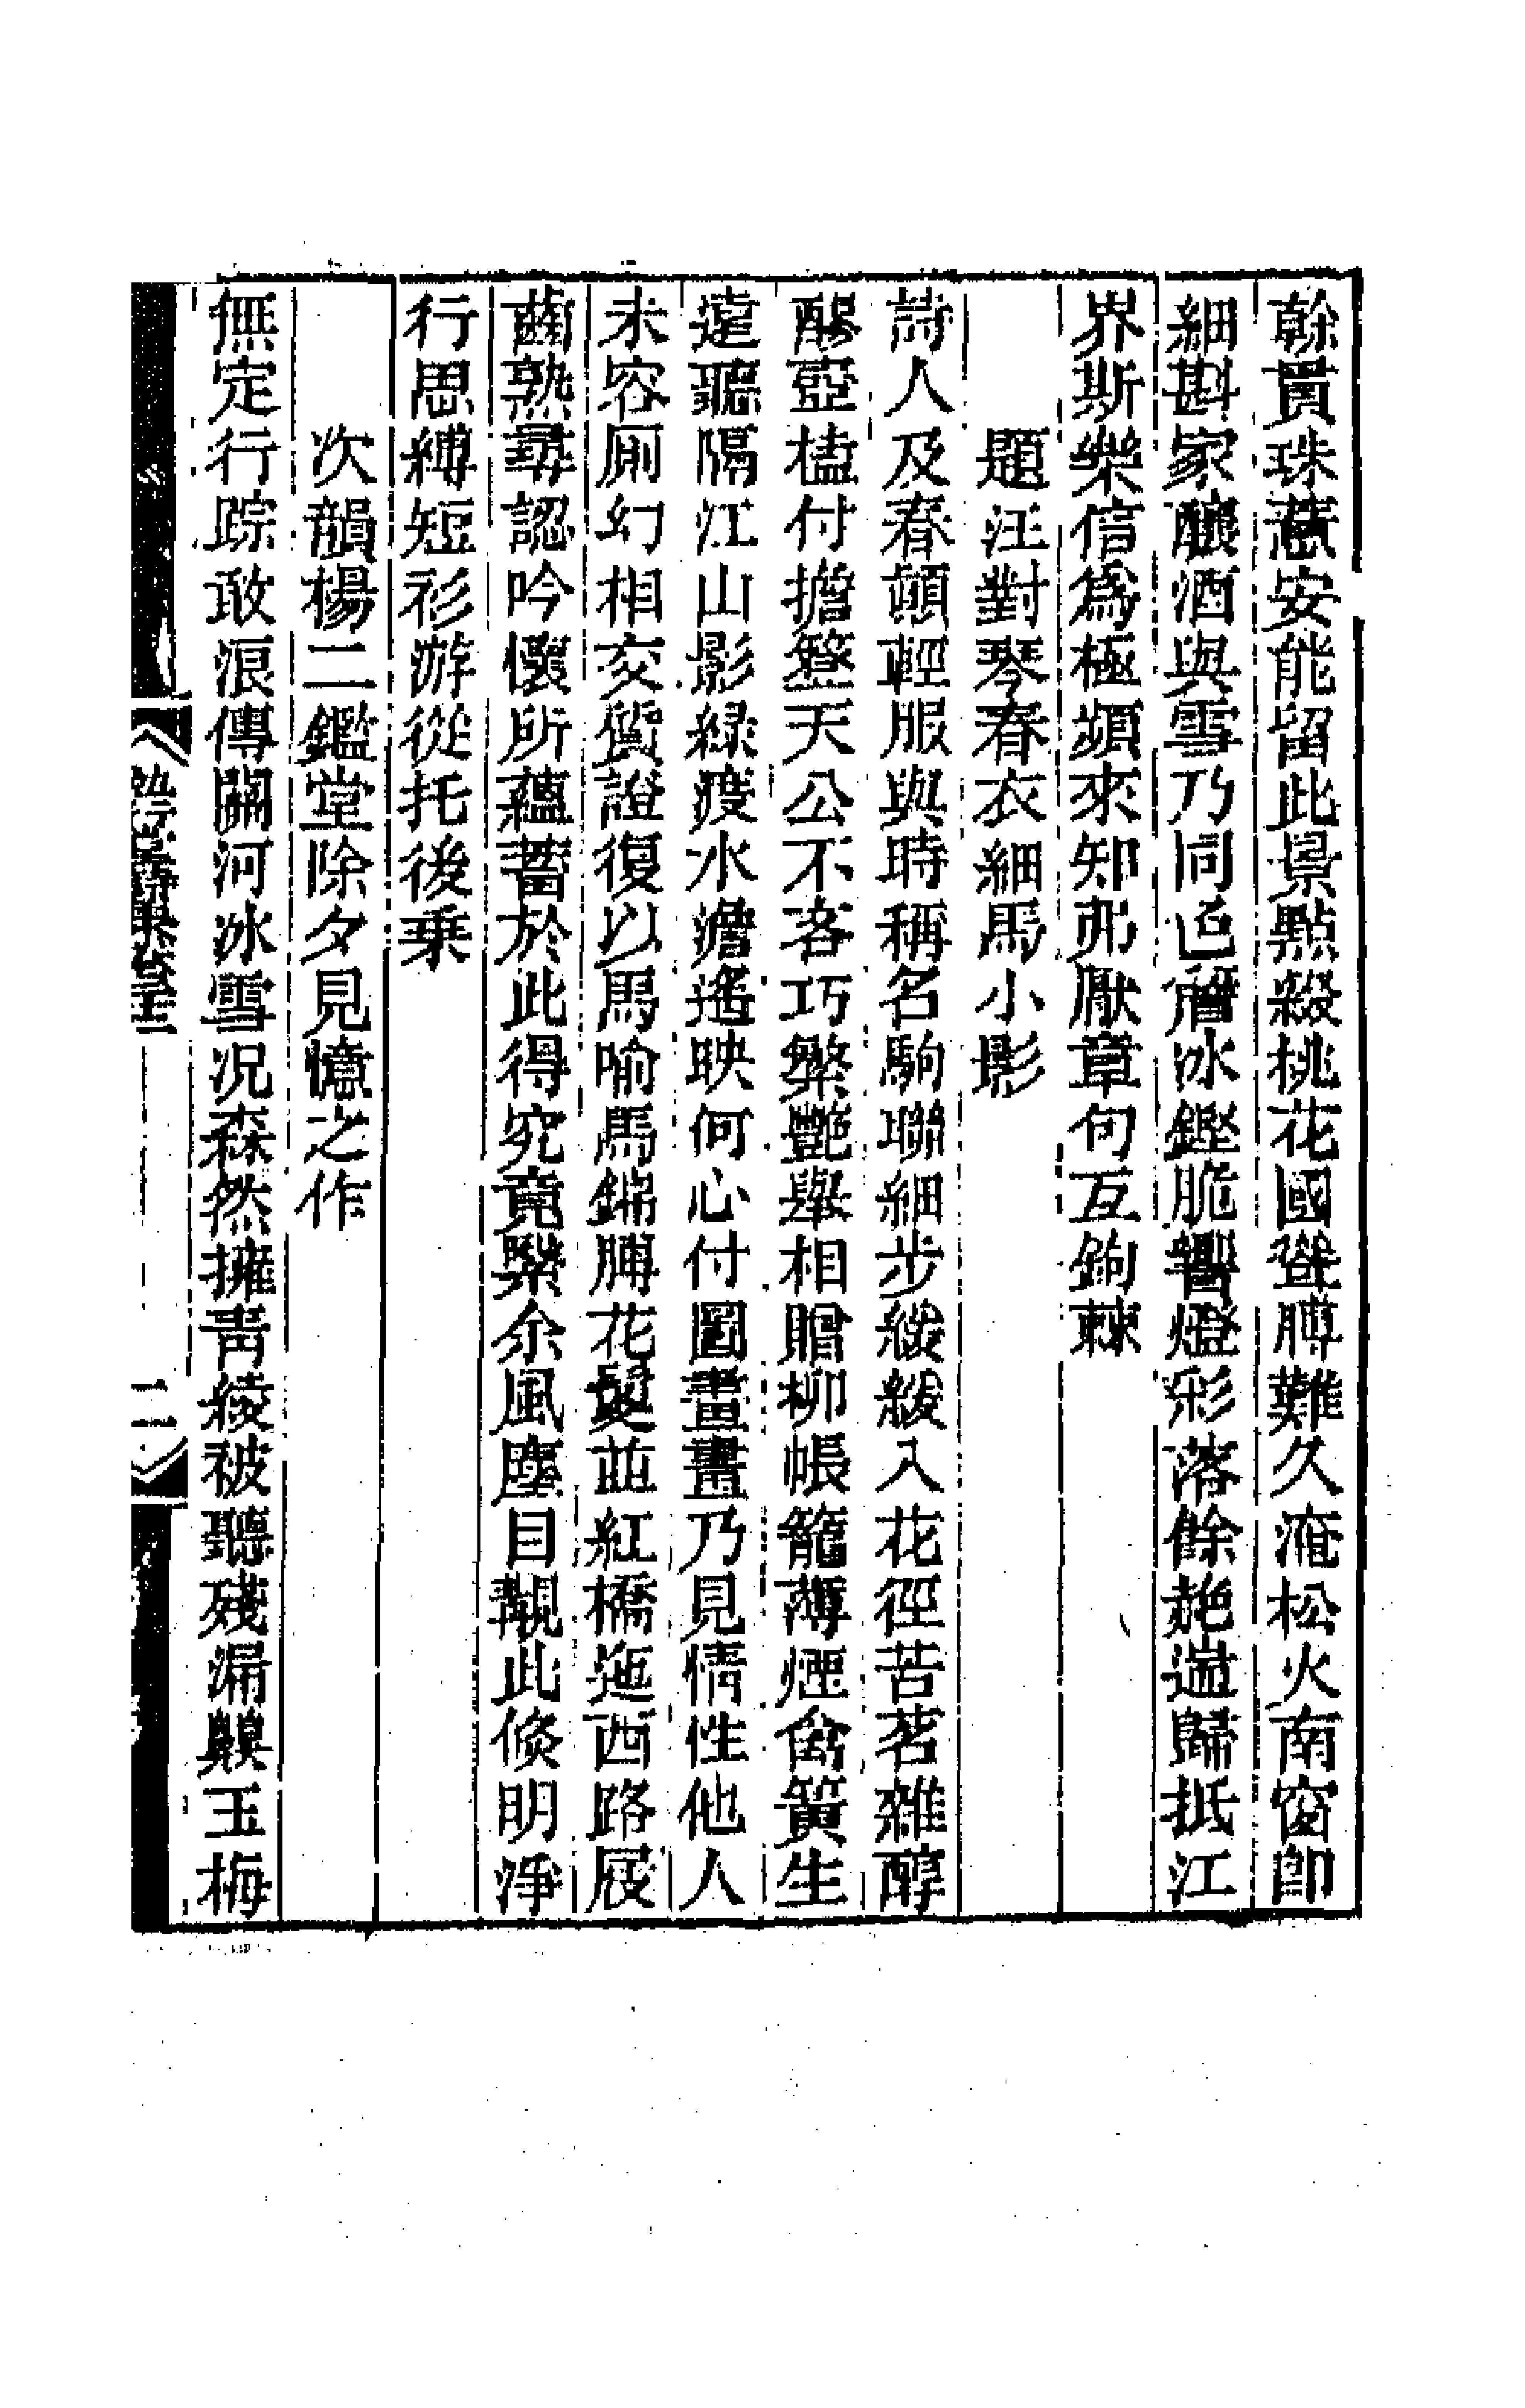 榦貫珠蕙安能留此景點綴桃花國聳膊難久淹松火南窗卽
細斟家釀酒與雪乃同色簷冰鏗脆響燈彩落餘艶遄歸抵江
界斯樂信爲極頻來知弗厭章句互鉤棘
題汪對琴春衣細馬小影
詩人及春韻輕服與時稱名駒聯細步緩緩入花徑苦茗雜醇
醪壺榼付擔簦天公不吝巧繁艷舉相贈柳帳籠薄煙禽簧生
遠聽隔江山影綠疲水澹遙映何心付圖畫畫乃見情性他人
未容廁幻相交質證復以馬喻馬錦膊花鬉並紅橋迤西路屐
齒熟尋認吟懷所蘊蓄於此得究竟緊余風塵目覩此倐明淨
行思縛短衫游從托後乗
次韻楊二鑑堂除夕見憶之作
無定行踪敢浪傳關河冰雪況森然擁青綾被聽殘漏齅玉梅
二